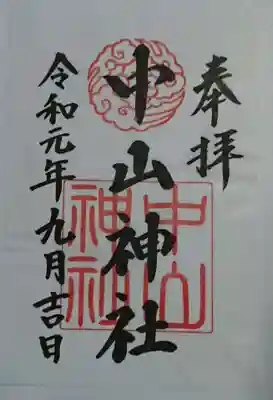 奉拝
中山神社
令和元年九月吉日
中山
神社